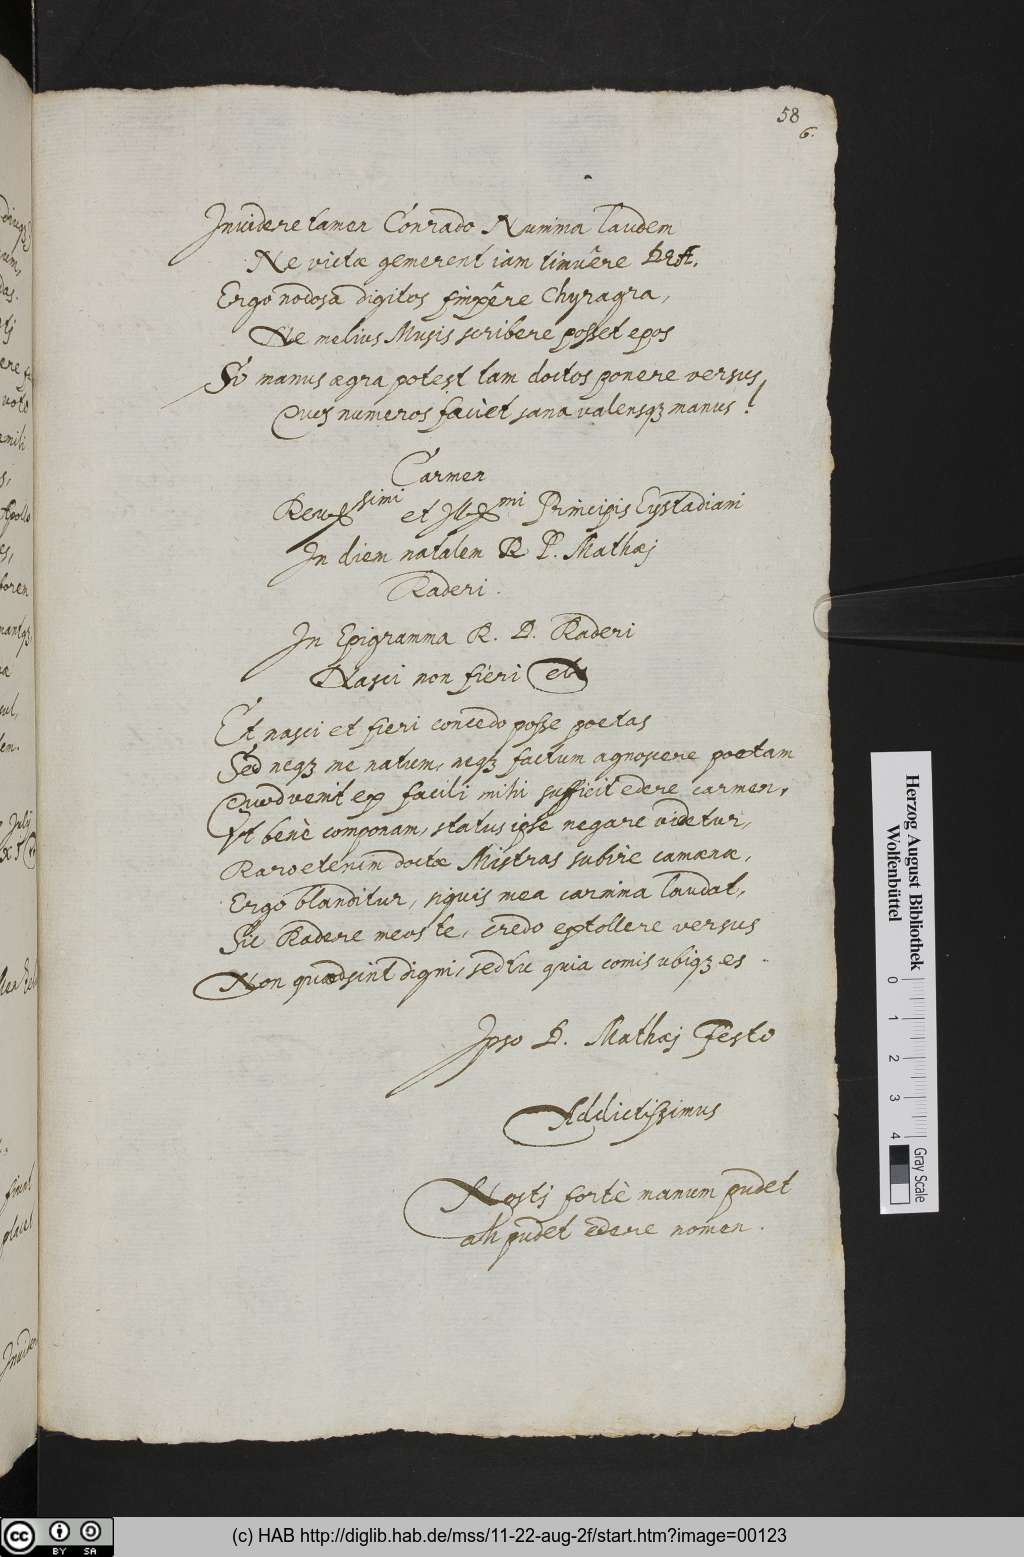 58
6.
Inuidere tamen Conrado Numina laudem
Ne victæ gemerent iam timuêre DEÆ.
Ergo nodosa digitos finxêre Chyragra,
Ne melius Musis scribere posset epos
Si manus ægra potest tam doctos ponere versus
Quos numeros faciet sana valensqz manus!
Carmen
Reu simi et Ill mi Principis Eystadiani
In diem natalem R P. Mathæj
Raderi.
In Epigramma R. D. Raderi
Nasci non fieri etc
Et nasci et fieri concedo posse poetas
Sed neqz me natum, neqz factum agnoscere poetam
Quod venit ex facili mihi sufficit edere carmen,
Vt benè componam, status ipse negare videtur,
Raro etenim doctæ Mistras subire camænæ,
Ergo blanditur, siquis mea carmina laudat,
Sic Radere meos te, credo extollere versus
Non quod sint digni, sed tu quia comis ubiqz es.
Ipso D. Mathæj Festo
Addictissimus
Nostj fortè manum pudet
ah pudet edere nomen.
Herzog August Bibliothek
Wolfenbüttel
0 1 2 3 4
Gray Scale
cc BY SA
(c) HAB http://diglib.hab.de/mss/11-22-aug-2f/start.htm?image=00123